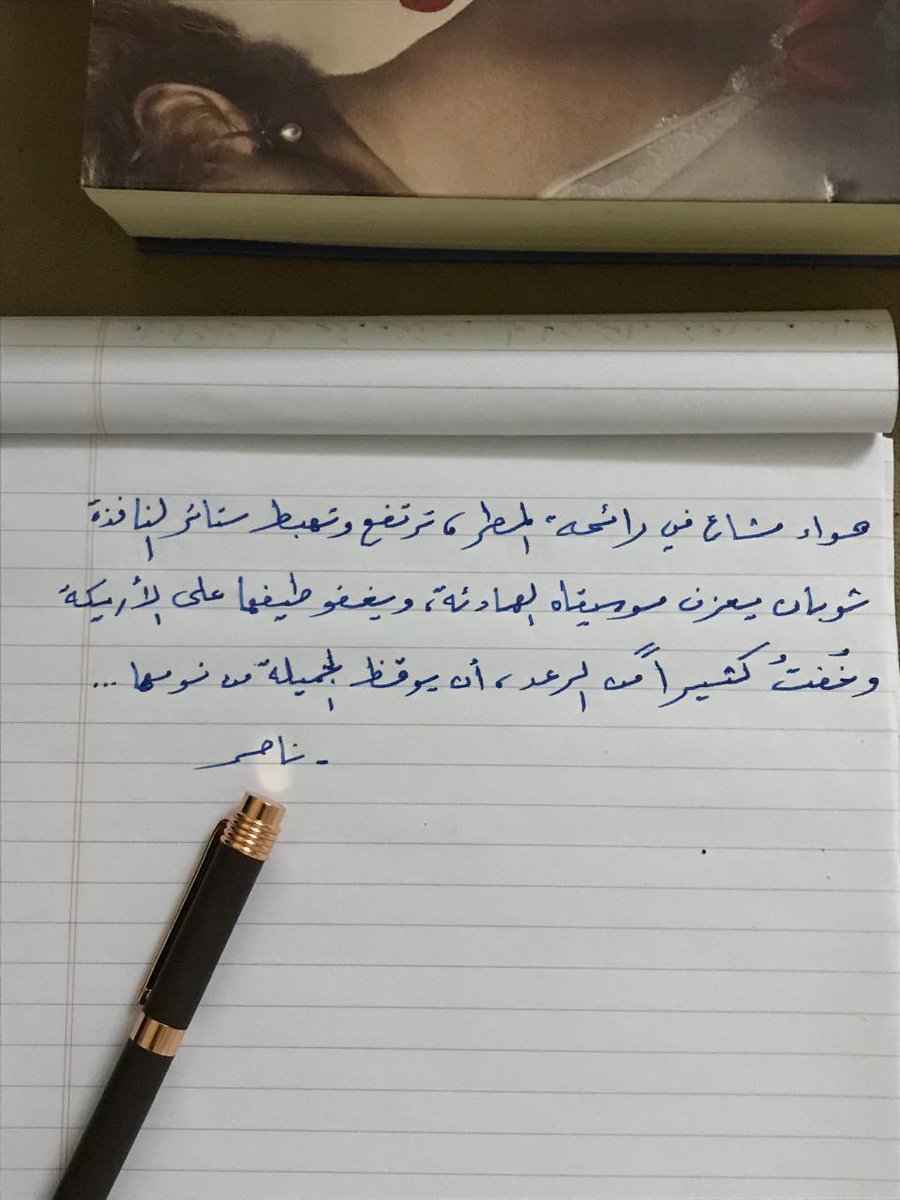 هواء مشاع في رائحة المطر، ترتفع وتهبط ستائر النافذة
شوبان يعزف موسيقاه الهادئة، ويغفو طيفها على الأريكة
وخُفتُ كثيراً من الرعد، أن يوقظ الجميلة من نومها ...
- ناصر